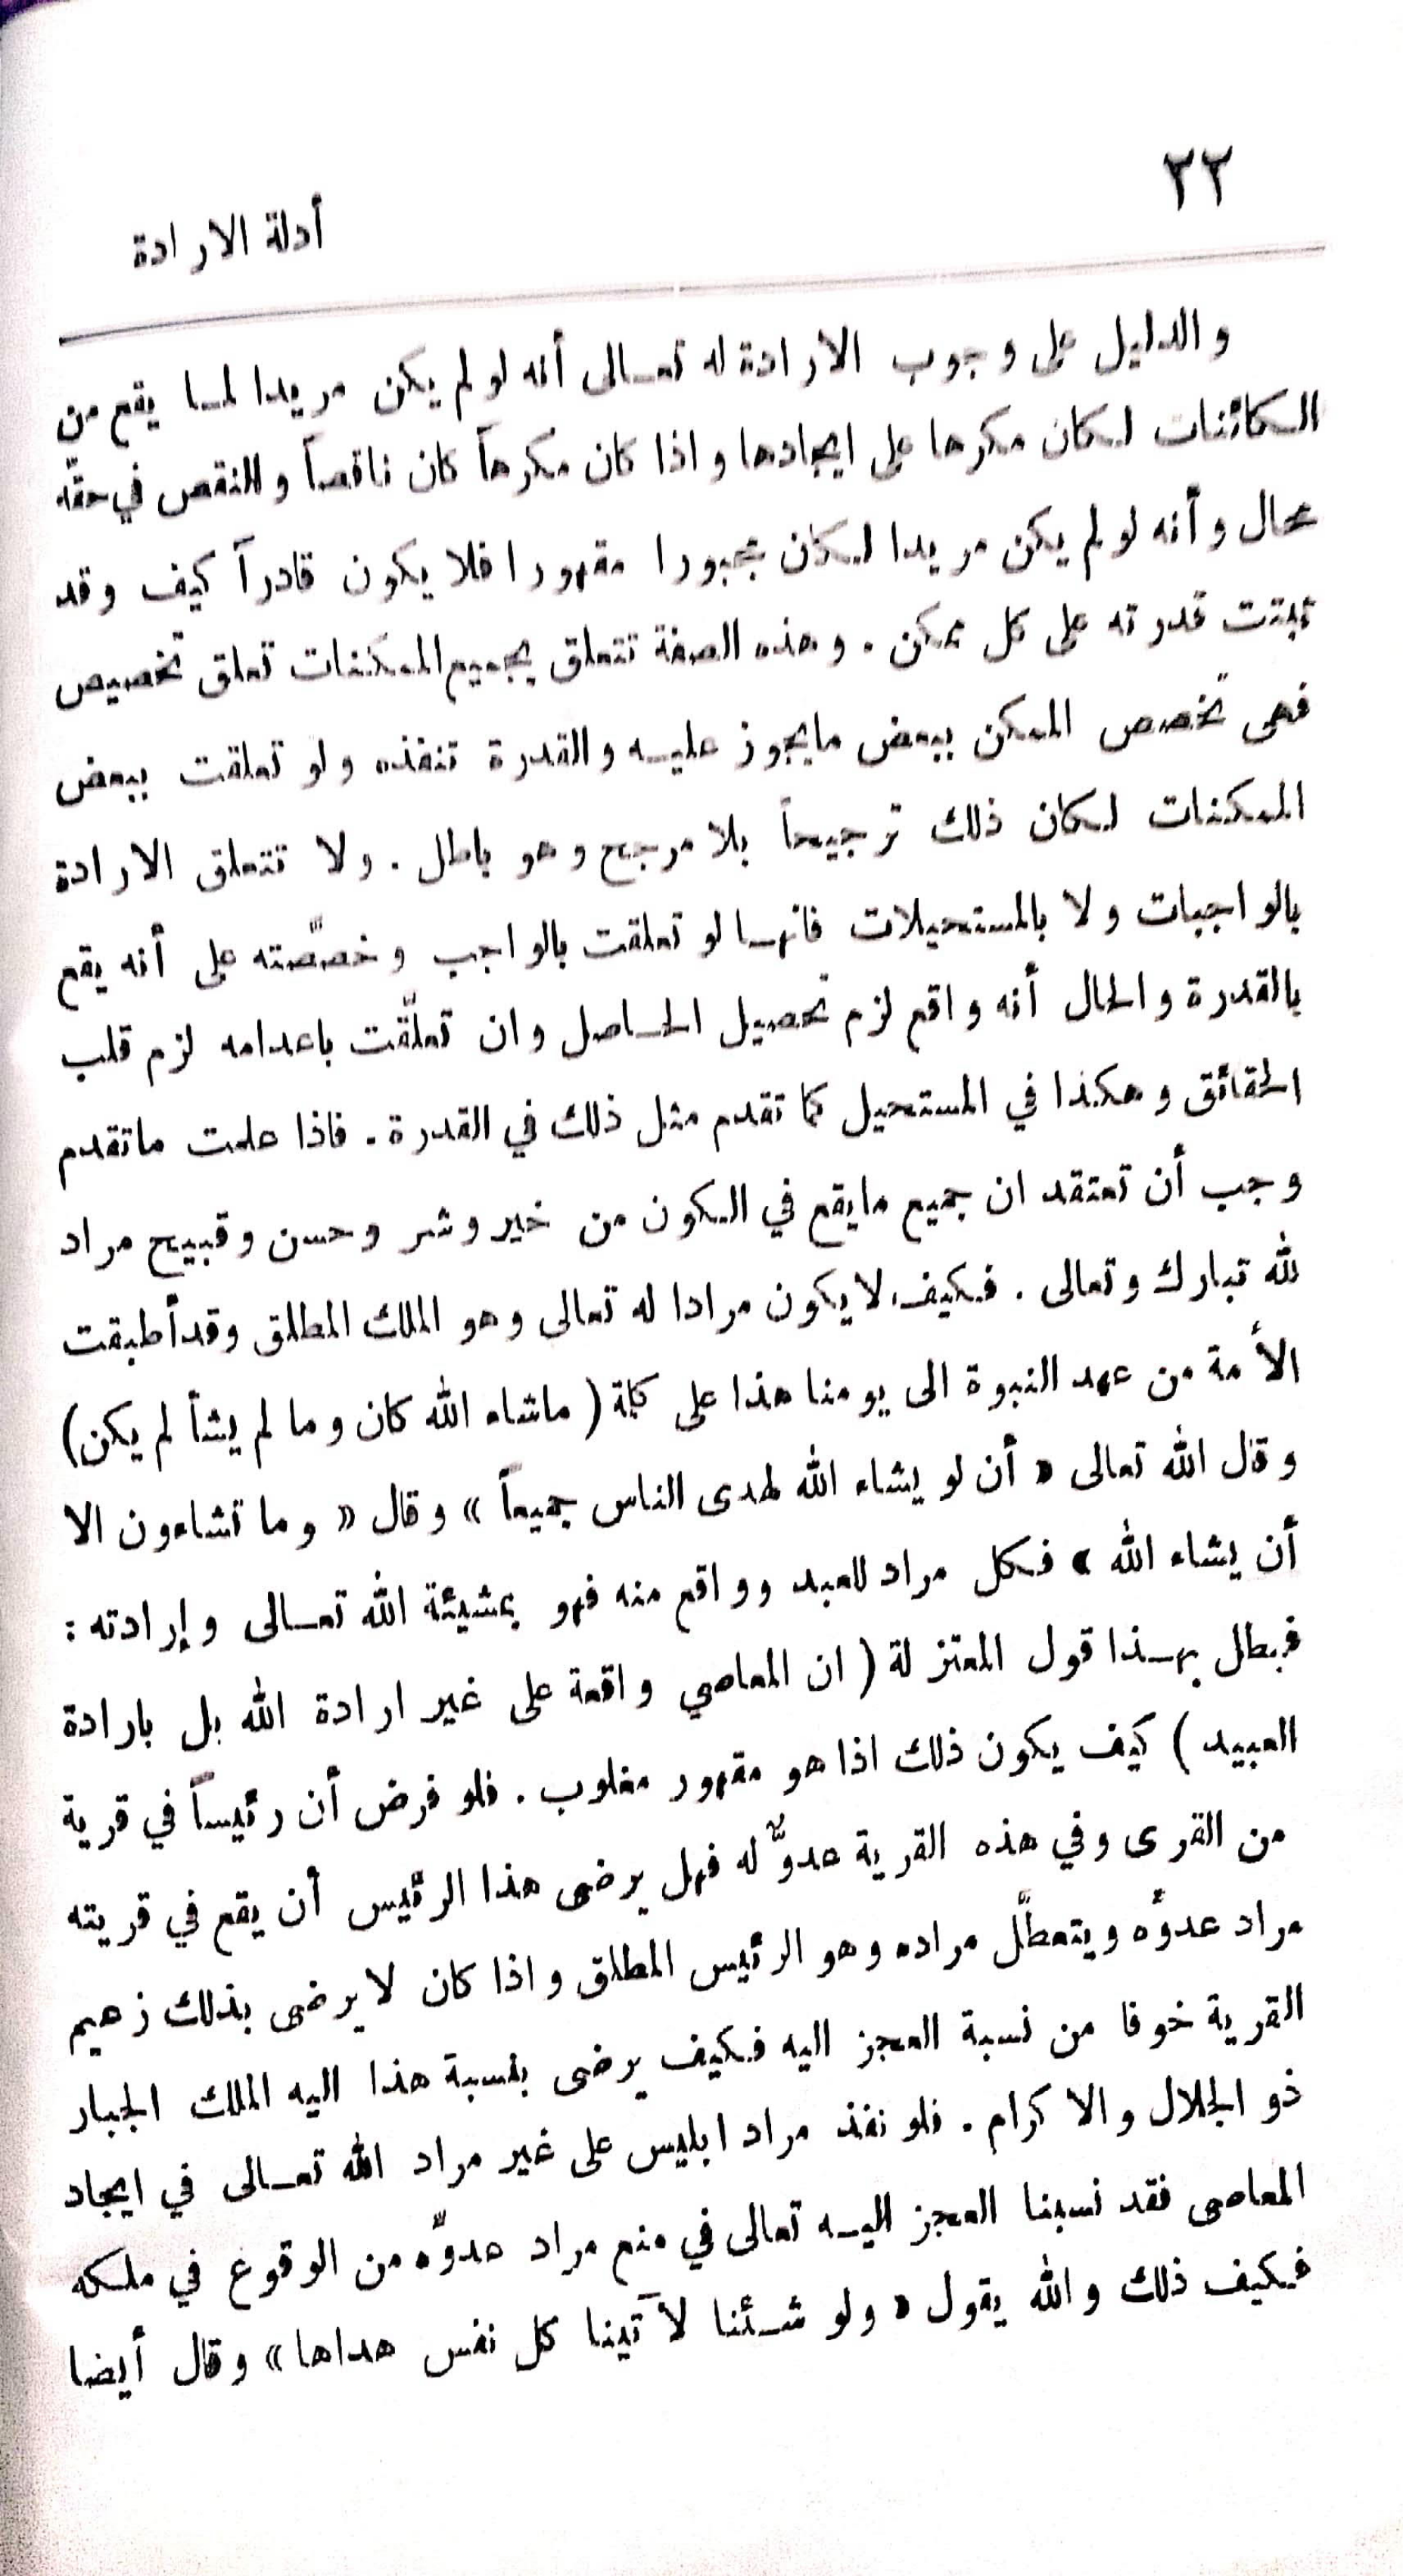 ٢٢
أدلة الارادة
والدليل على وجوب الارادة له تعالى أنه لو لم يكن مريدا لما يقع من
الكائنات لكان مكرها على ايجادها واذا كان مكرهاً كان ناقصاً والنقص في حقّه
محال وأنه لو لم يكن مريدا لكان مجبورا مقهورا فلا يكون قادراً كيف وقد
ثبتت قدرته على كل ممكن . وهذه الصفة تتعلق بجميع الممكنات تعلق تخصيص
فهى تخصص الممكن ببعض مايجوز عليه والقدرة تنفذه ولو تعلقت ببعض
الممكنات لكان ذلك ترجيحاً بلا مرجح وهو باطل . ولا تتعلق الارادة
بالواجبات ولا بالمستحيلات فانها لو تعلقت بالواجب وخصّصته على أنه يقع
بالقدرة والحال أنه واقع لزم تحصيل الحاصل وان تعلّقت باعدامه لزم قلب
الحقائق وهكذا في المستحيل كما تقدم مثل ذلك في القدرة . فاذا علمت ماتقدم
وجب أن تعتقد ان جميع مايقع في الكون من خير وشر وحسن وقبيح مراد
لله تبارك وتعالى . فكيف لايكون مرادا له تعالى وهو الملك المطلق وقد أطبقت
الأمة من عهد النبوة الى يومنا هذا على كلمة ( ماشاء الله كان وما لم يشأ لم يكن )
وقال الله تعالى « أن لو يشاء الله لهدى الناس جميعاً » وقال « وما تشاءون الا
أن يشاء الله » فكل مراد للعبد وواقع منه فهو بمشيئة الله تعالى وإرادته :
فبطل بهذا قول المعتزلة ( ان المعاصي واقعة على غير ارادة الله بل بارادة
العبيد ) كيف يكون ذلك اذا هو مقهور مغلوب . فلو فرض أن رئيساً في قرية
من القرى وفي هذه القرية عدوٌّ له فهل يرضى هذا الرئيس أن يقع في قريته
مراد عدوِّه ويتعطّل مراده وهو الرئيس المطلق واذا كان لايرضى بذلك زعيم
القرية خوفا من نسبة العجز اليه فكيف يرضى بنسبة هذا اليه الملك الجبار
ذو الجلال والاكرام . فلو نفذ مراد ابليس على غير مراد الله تعالى في ايجاد
المعاصى فقد نسبنا العجز اليه تعالى في منع مراد عدوِّه من الوقوع في ملكه
فكيف ذلك والله يقول « ولو شئنا لآتينا كل نفس هداها » وقال أيضا